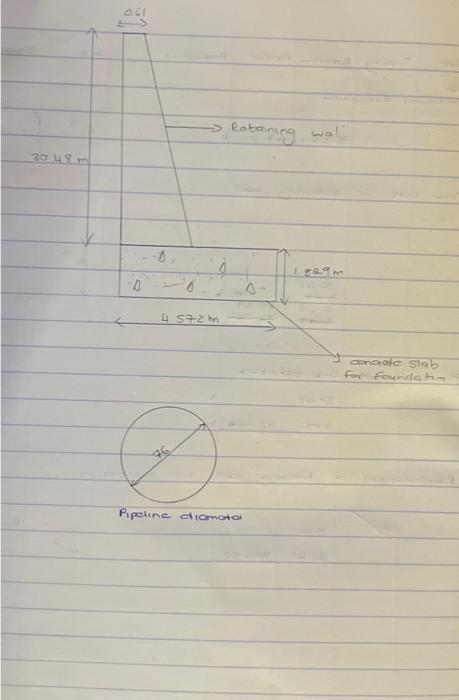 0.61
Retaining wal
20.48 m
1.829m
4.572m
concrete slab
for foundation
76
Pipeline diameter